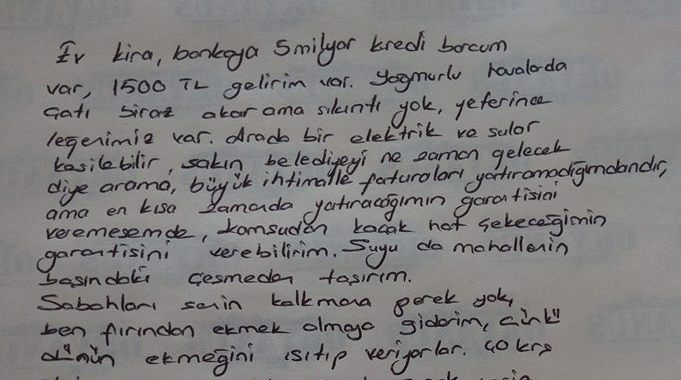 Ev kira, bankaya 5 milyar kredi borcum
var, 1500 TL gelirim var. Yağmurlu havalarda
çatı biraz akar ama sıkıntı yok, yeterince
leğenimiz var. Arada bir elektrik ve sular
kesilebilir, sakın belediyeyi ne zaman gelecek
diye arama, büyük ihtimalle faturaları yatıramadığımdandır,
ama en kısa zamanda yatıracağımın garantisini
veremesemde, komşudan kaçak hat çekeceğimin
garantisini verebilirim. Suyu da mahallenin
başındaki çeşmeden taşırım.
Sabahları senin kalkmana gerek yok,
ben fırından ekmek almaya giderim, çünkü
dünün ekmeğini ısıtıp veriyorlar. 40 krş